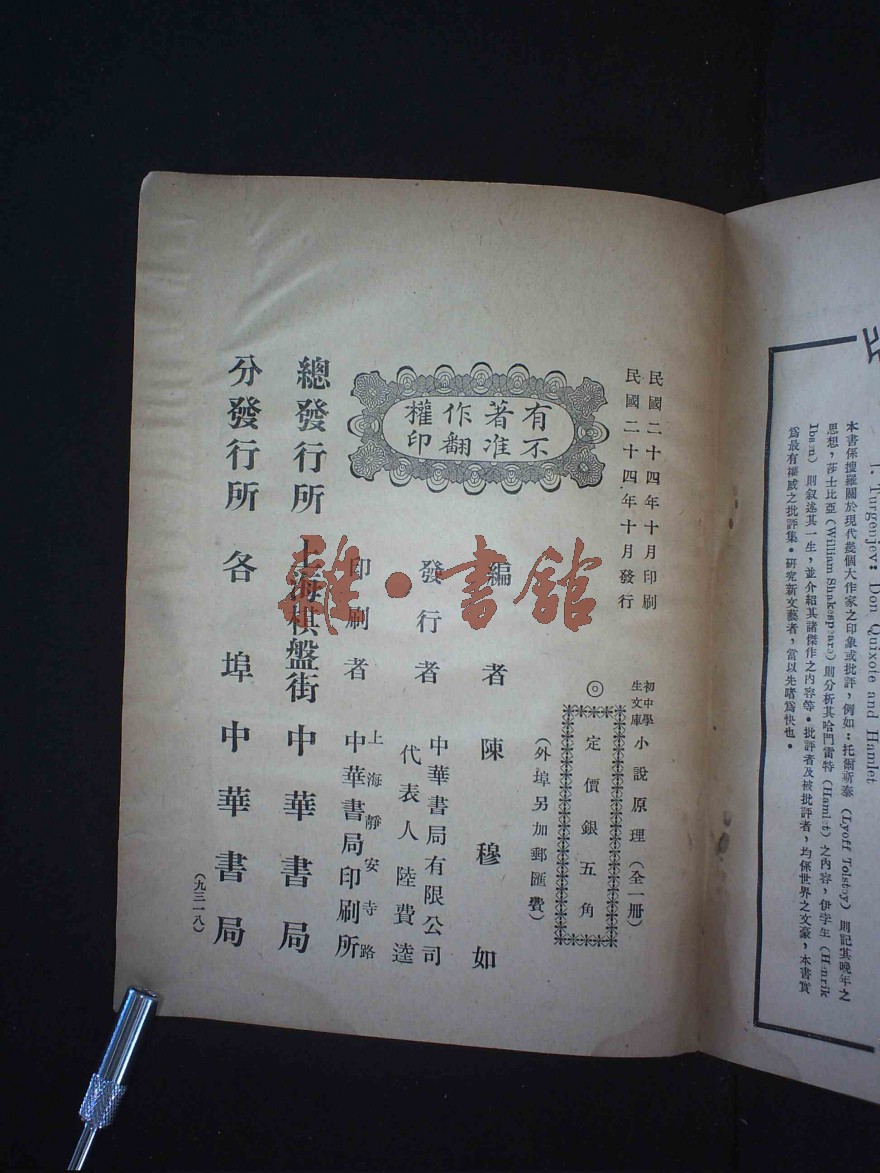 民國二十四年十月印刷
民國二十四年十月發行
初中學生文庫 小說原理(全一冊)
◎定價銀五角
(外埠另加郵匯費)
有著作權
不准翻印
編者 陳穆如
發行者 中華書局有限公司
代表人 陸費逵
印刷者 上海靜安寺路
中華書局印刷所
總發行所 上海棋盤街 中華書局
分發行所 各埠 中華書局
(九三一八)
雜·書館
1. Turgenjev: Don Quixote and Hamlet
本書係搜羅關於現代幾個大作家之印象或批評,例如:托爾斯泰(Lyoff Tolstoy)則記其晚年之
思想,莎士比亞(William Shakespeare)則分析其哈門雷特(Hamlet)之內容,伊孛生(Henrik
Ibsen)則叙述其一生,並介紹其諸傑作之內容等。批評者及被批評者,均係世界之文豪,本書實
爲最有權威之批評集。研究新文藝者,當以先睹爲快也。